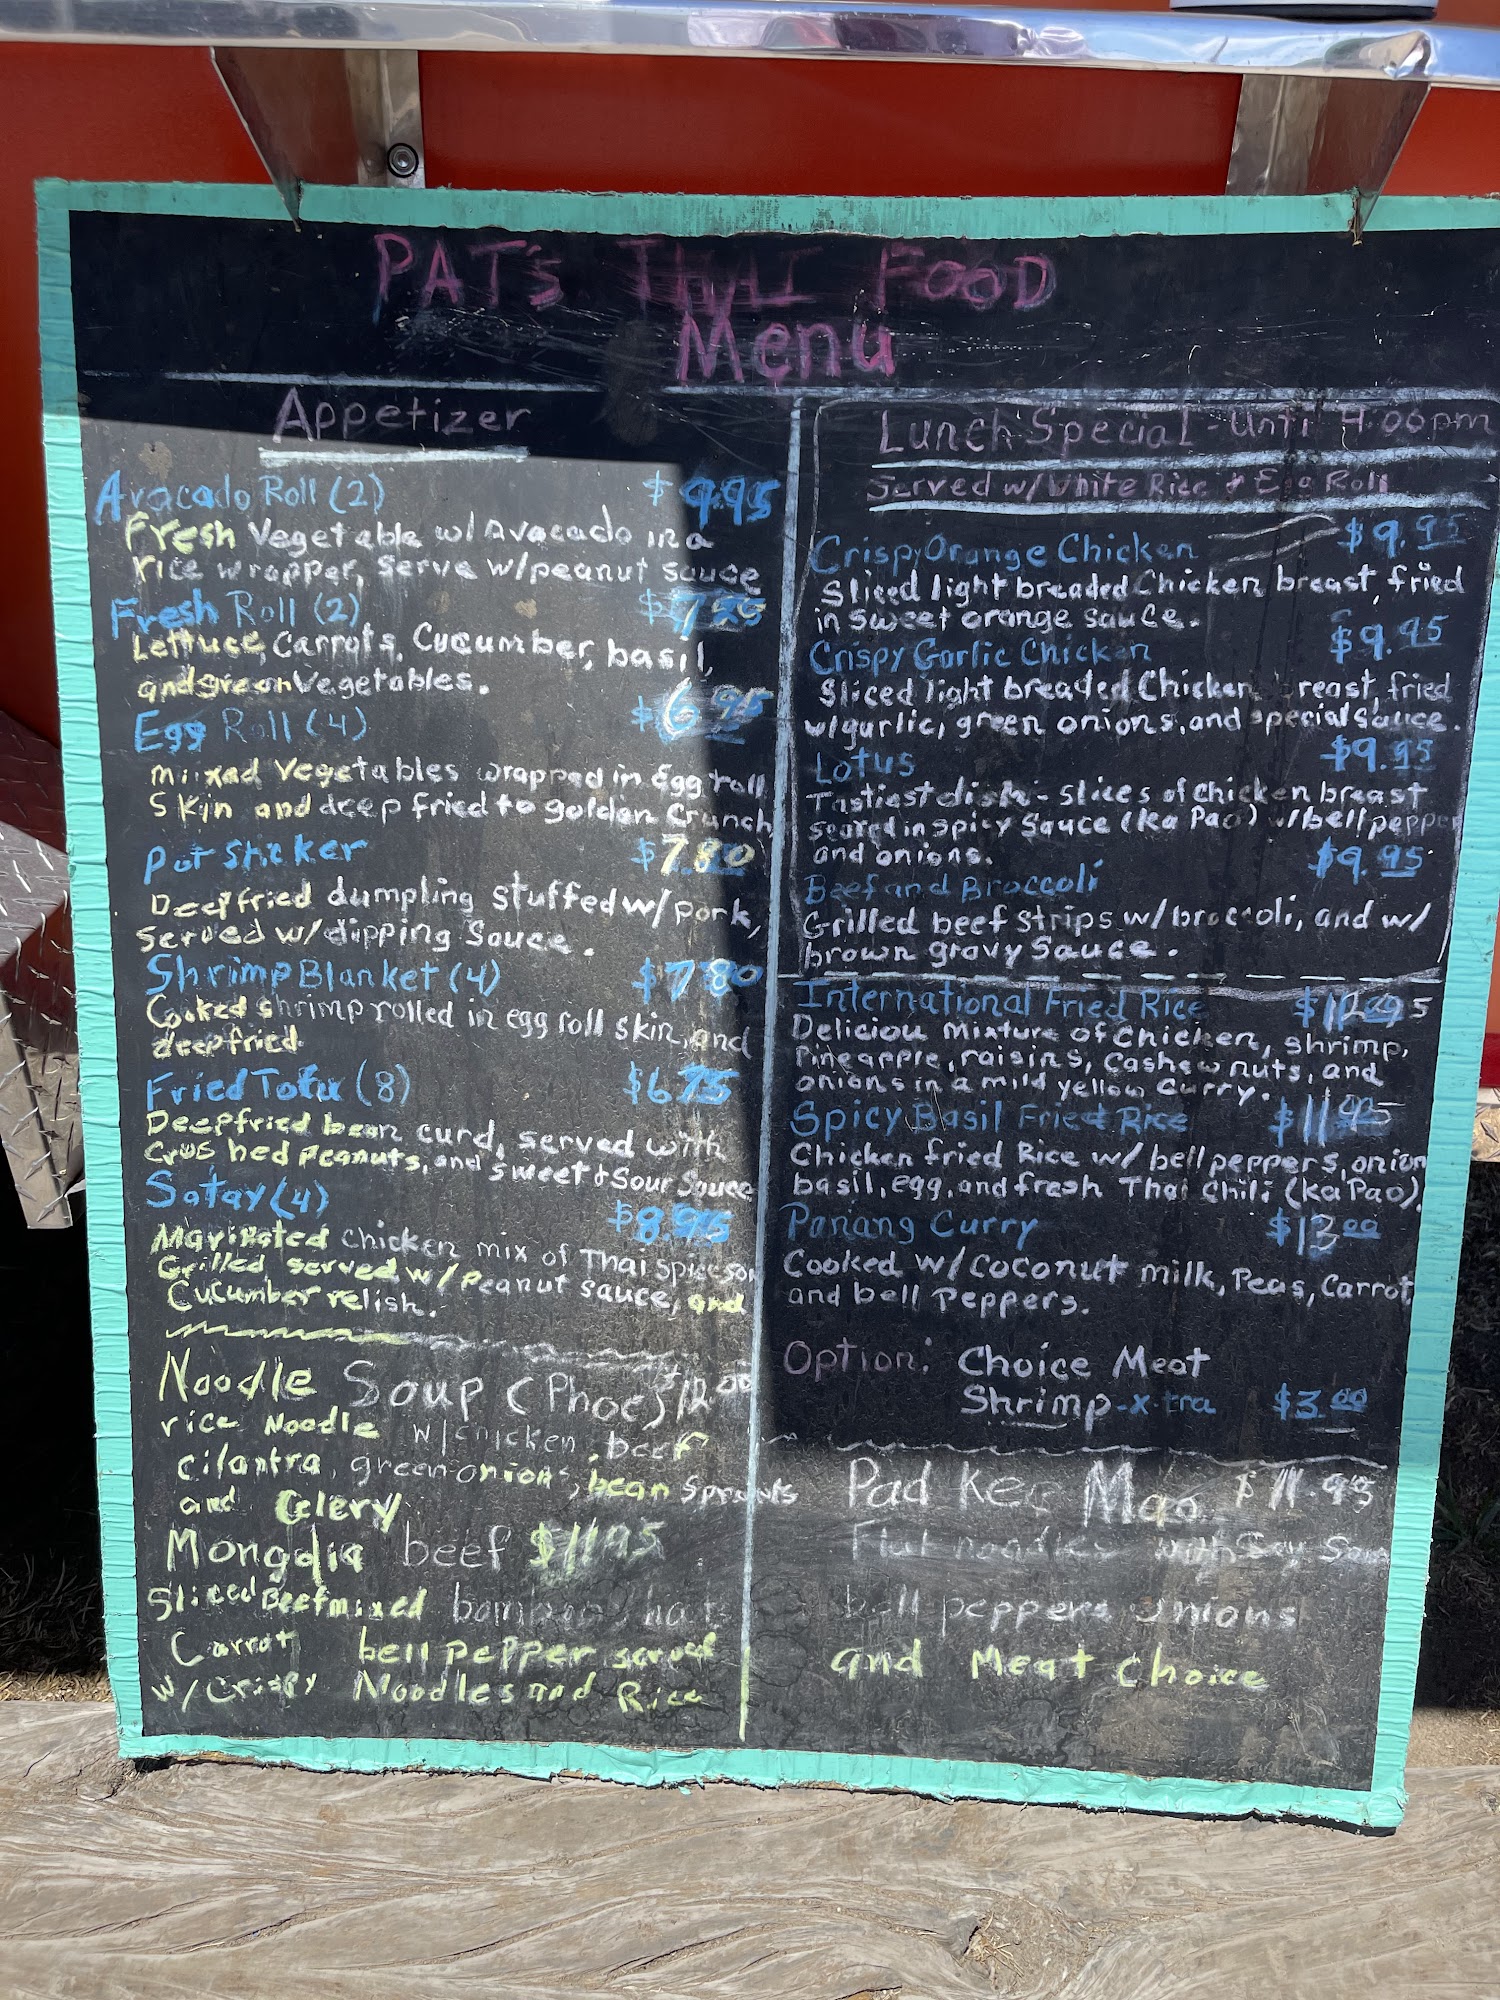 PAT's THAI FOOD
Menu
Appetizer
Avacado Roll (2) $9.95
Fresh Vegetable w/ Avacado in a
rice wrapper, serve w/peanut sauce
Fresh Roll (2)
Lettuce, Carrots, Cucumber, basil,
and green Vegetables.
Egg Roll (4) $6.95
mixed Vegetables wrapped in Egg roll
Skin and deep fried to golden Crunch
Pot Sticker $7.80
Deep fried dumpling stuffed w/ pork,
Served w/ dipping Sauce.
Shrimp Blanket (4) $7.80
Cooked shrimp rolled in egg roll skin, and
deep fried
Fried Tofu (8) $6.75
Deep fried bean curd, served with
crushed peanuts, and sweet & Sour Sauce
Satay (4) $8.95
Marinated chicken mix of Thai spices on
Grilled served w/ Peanut sauce, and
Cucumber relish.
Noodle Soup (Phoe) $12.00
rice Noodle w/chicken, beef
cilantra, green onions, bean sprouts
and Celery
Mongolia beef $11.95
Sliced Beef mixed
Carrot bell pepper served
w/ Crispy Noodles and Rice
Lunch Special - until 4:00pm
Served w/ White Rice & Egg Roll
Crispy Orange Chicken $9.95
Sliced light breaded Chicken breast, fried
in sweet orange sauce.
Crispy Garlic Chicken $9.95
Sliced light breaded Chicken breast, fried
w/garlic, green onions, and special Sauce.
Lotus $9.95
Tastiest dish - slices of chicken breast
seared in spicy Sauce (Ka Pao) w/ bell pepper
and onions.
Beef and Broccoli $9.95
Grilled beef strips w/ broccoli, and w/
brown gravy Sauce.
International Fried Rice $12.95
Deliciou Mixture of Chicken, Shrimp,
Pineapple, raisins, Cashew nuts, and
onions in a mild yellow Curry.
Spicy Basil Fried Rice $11.95
Chicken fried Rice w/ bell peppers, onion
basil, egg, and fresh Thai Chili (Ka Pao).
Panang Curry $13.00
Cooked w/ Coconut milk, Peas, Carrot,
and bell Peppers.
Option: Choice Meat
Shrimp-x-tra $3.00
Pad Kee Mao $11.95
Flat noodles with Soy Sauce
bell peppers onions
and Meat Choice